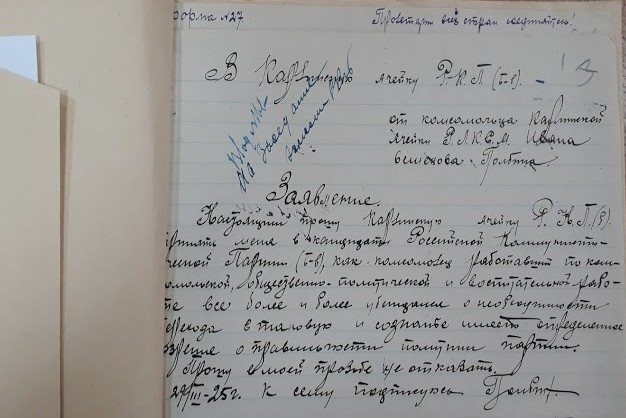 форма №27 Пролетарии всех стран соединяйтесь!
13
В Каргинскую ячейку Р.К.П.(б-в).
от комсомольца Каргинской
ячейки Р.Л.К.С.М. Ивана
Заявление.
Настоящим прошу Каргинскую ячейку Р.К.П.(б).
принять меня в кандидаты Российской Коммунисти-
ческой Партии (б-в), как комсомолец работавший по ком-
сомольской, общественно-политической и воспитательной рабо-
те все более и более убеждался о необходимости
перехода в таковую и сознание имеет определенное
о правильности политики партии.
Прошу в моей просьбе не отказать.
29/III-25г. К сему подписуюсь